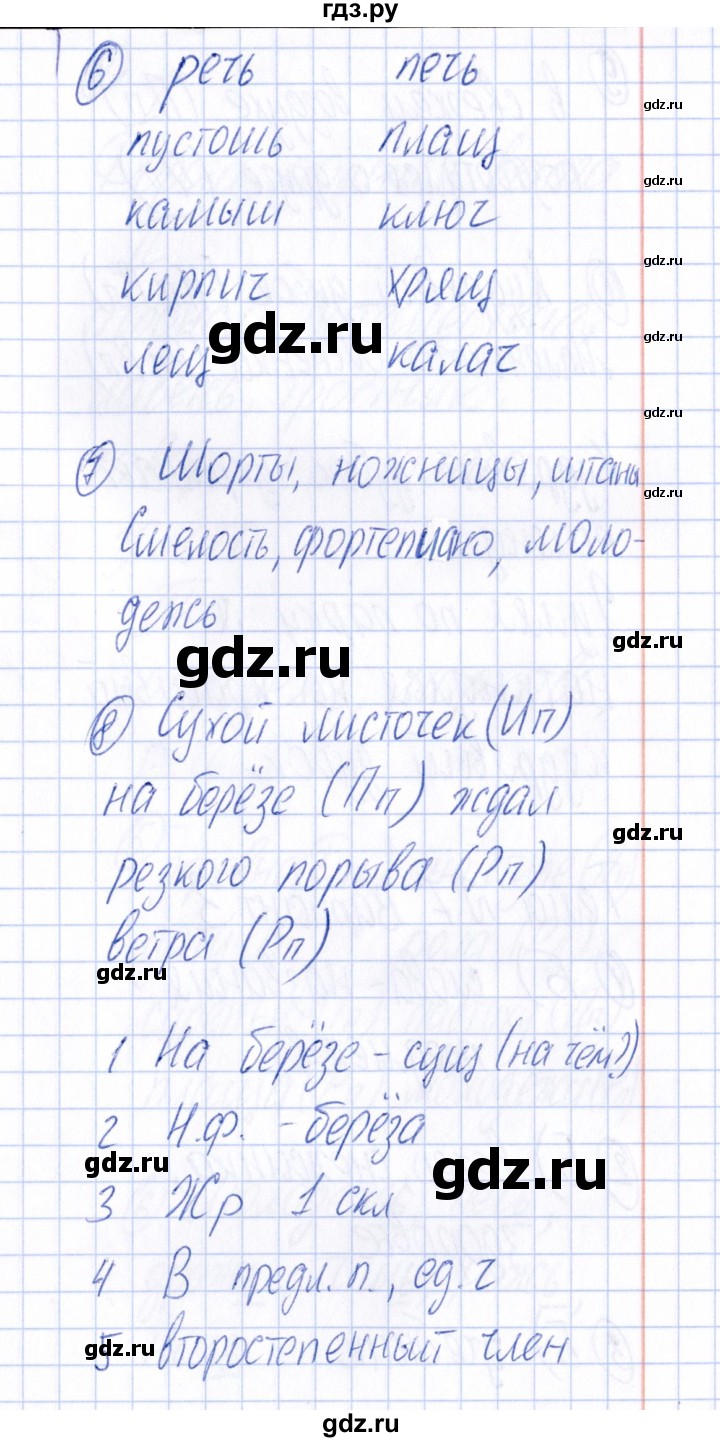 гдз.ру
6 речь печь
gdz.ru
пустошь плащ
gdz.ru
камыш ключ
gdz.ru
кирпич хрящ
gdz.ru
gdz.ru
лещ калач
gdz.ru
7 Шорты, ножницы, штаны
gdz.ru
Смелость, фортепиано, моло-
дежь
gdz.ru
gdz.ru
8 Сухой листочек (Ип)
на берёзе (Пп) ждал
gdz.ru
резкого порыва (Рп)
ветра (Рп)
gdz.ru
1 На берёзе - сущ (на чём?)
2 Н.ф. - берёза
gdz.ru
gdz.ru
3 Жр 1 скл
4 В предл. п., ед. ч
5 второстепенный член
gdz.ru
gdz.ru